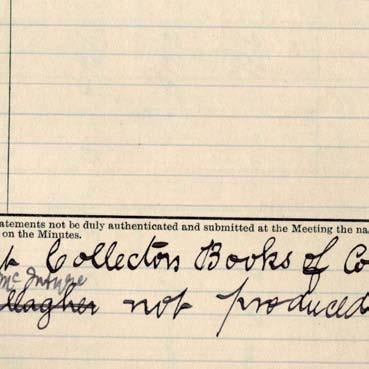 atements not be duly authenticated and submitted at the Meeting the na
on the Minutes.
Collectors Books of Co
McIntyre
llagher not produced